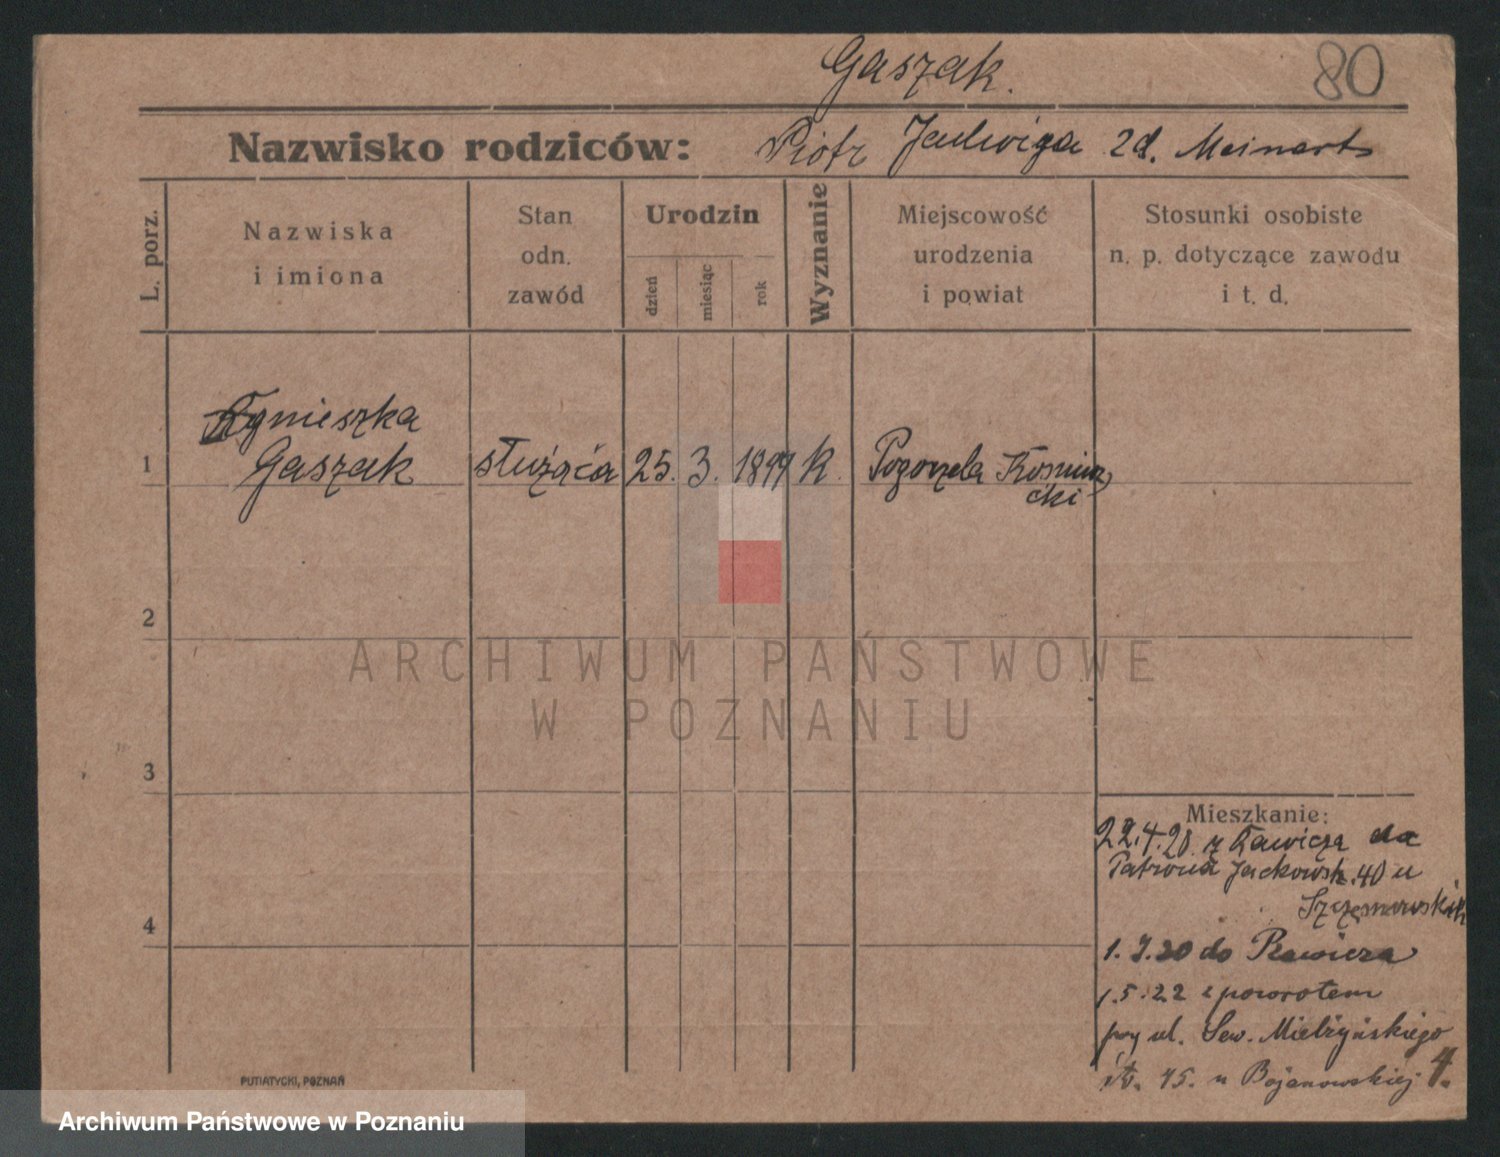 Gaszak.
80
Nazwisko rodziców: Piotr Jadwiga zd. Meinart
L. porz.
Nazwiska
i imiona
Stan
odn.
zawód
Urodzin
dzień
miesiąc
rok
Wyznanie
Miejscowość
urodzenia
i powiat
Stosunki osobiste
n. p. dotyczące zawodu
i t. d.
1
Agnieszka
Gaszak
służąca
25. 3.
K.
Pogorzela Koźmiń
ski
2
ARCHIWUM PAŃSTWOWE
W POZNANIU
3
Mieszkanie:
22.4.20. z Rawicza do
Patrona Jackowsk. 40 u
4
1.7.20 do Rawicza
1.5.22 z powrotem
przy ul. Sew. Mielżyńskiego
u Bojanowskiej
4.
PUTIATYCKI, POZNAŃ
Archiwum Państwowe w Poznaniu